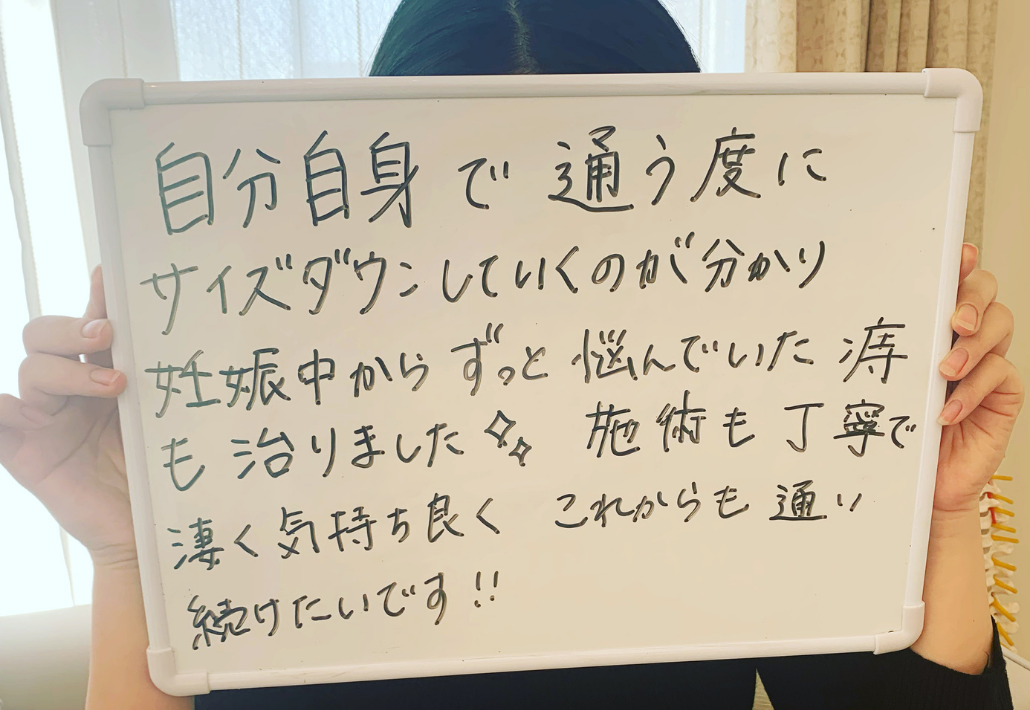 自分自身で通う度に
サイズダウンしていくのが分かり
妊娠中からずっと悩んでいた痔
も治りました✨ 施術も丁寧で
凄く気持ち良く これからも通い
続けたいです!!